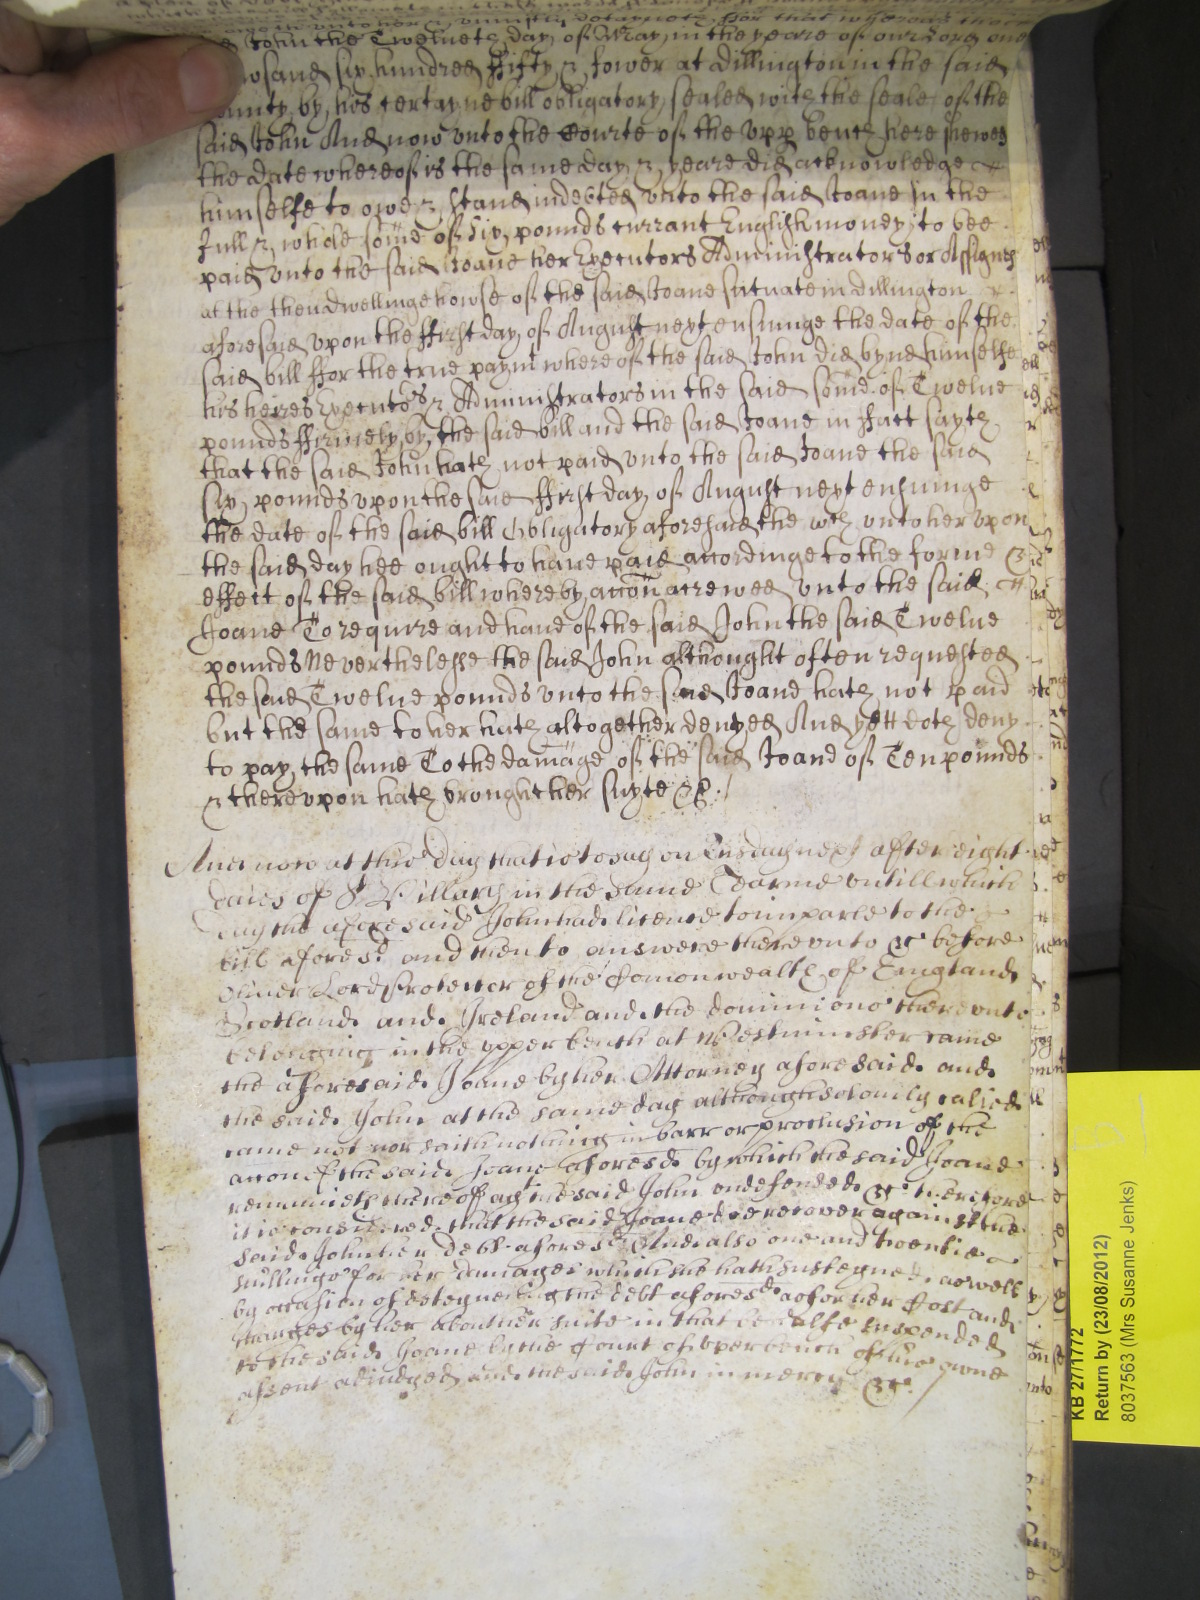 a plea of
unto her &
John the Twelueth day of May in the yeare of our Lord one
thousand six hundred ffifty & fower at Dillington in the said
County by his certayne bill obligatory sealed with the seale of the
said John And now vnto the Courte of the vpp bench here shewed
the date whereof is the same day & yeare did acknowledge
himselfe to owe & stand indebted vnto the said Joane in the
full & whole some of six pounds currant English money to bee
paid vnto the said Joane her Executors Administrators or Assignes
at the then dwellinge howse of the said Joane scituate in Dillington
aforesaid vpon the ffirst day of August next ensuinge the date of the
said bill ffor the true paymt whereof the said John did bynd himselfe
his heires Executors & Administrators in the said some of Twelue
pounds ffirmely by the said bill and the said Joane in ffact sayth
that the said John hath not paid vnto the said Joane the said
six pounds vpon the said ffirst day of August next ensuinge
the date of the said bill Obligatory aforesaid the wch vnto her vpon
the said day hee ought to haue paid accordinge to the forme &
effect of the said bill whereby accon accrewed vnto the said
Joane To require and haue of the said John the said Twelue
pounds Neverthelesse the said John althought often requested
the said Twelue pounds vnto the said Joane hath not paid
but the same to her hath altogether denyed And yett doth deny
to pay the same To the damage of the said Joane of Ten pounds
& therevpon hath brought her suyte &c /
And now at this day that is to say on Tusday next after eight
daies of St Hillary in the same Tearme vntill which
day the aforesaid John had licence to imparle to the
bill aforesd and then to answere therevnto &c before
Oliuer Lord Protector of the Comonwealth of England
Scotland and Ireland and the dominions therevnto
belonging in the vpper bench at Westminster came
the aforesaid Joane by her Attorney aforesaid and
the said John at the same day although solemly called
came not nor saith nothing in barr or preclusion of the
accon of the said Joane aforesd by which the said Joane
remaineth thereof agt the said John vndefended &c therefore
it is considered that the said Joane doe recover against the
said John her debt aforesd And also one and twentie
shillings for her damages which she hath susteyned aswell
by occasion of deteyneing the debt aforesd as for her Cost and
Charges by her about her suite in that behalfe expended
to the said Joane by the Court of vpper bench of his owne
assent adiudged and the said John in mercy &c /
KB 27/1772
Return by (23/08/2012)
8037563 (Mrs Susanne Jenks)